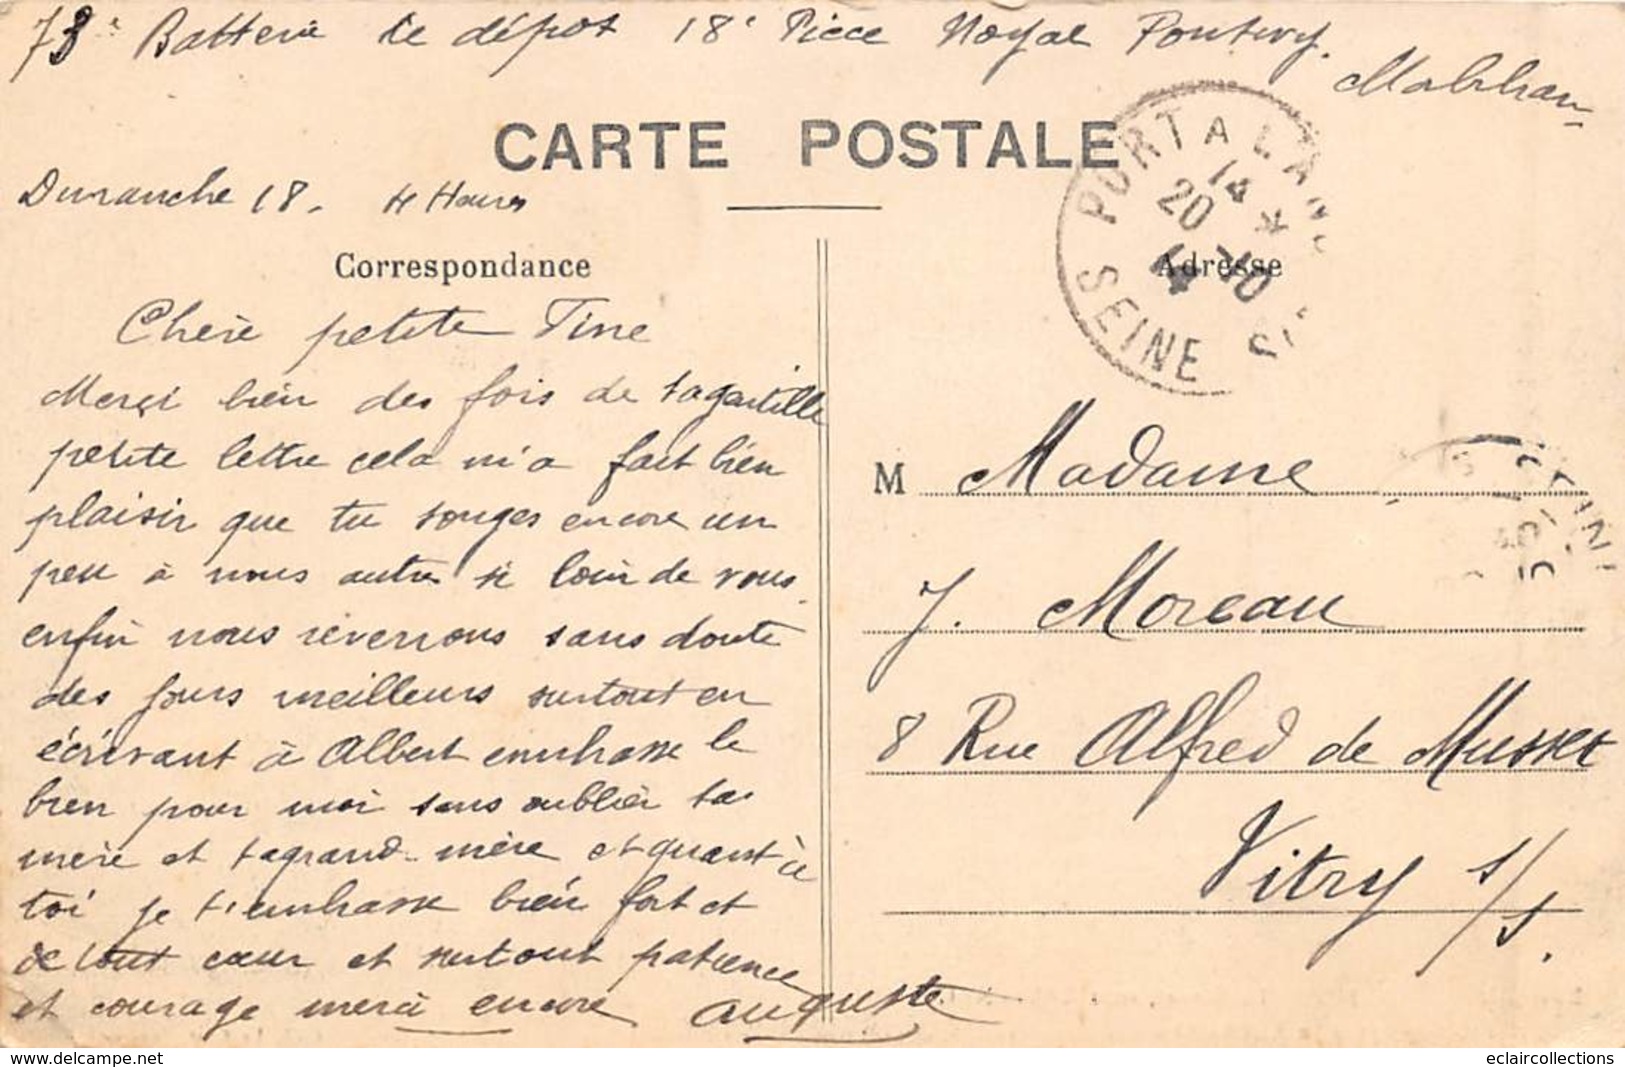 73e Batterie de dépot 18e Piece Noyal Pontivy.
Morbihan
CARTE POSTALE
PORT A L'AN
14 *
20 -10
14
SEINE
Dimanche 18. 4 Heures
Correspondance
Adresse
Chère petite Tine
Merçi bien des fois de ta gentille
petite lettre cela m'a fait bien
plaisir que tu songes encore un
peu à nous autres si loin de vous
enfin nous reverrons sans doute
des jours meilleurs surtout en
écrivant à Albert embrasse le
bien pour moi sans oublier ta
mère et ta grand-mère et quant à
toi je t'embrasse bien fort et
de tout cœur et surtout patience
et courage merci encore Auguste
M Madame
J. Moreau
8 Rue Alfred de Musset
Vitry s/S.
www.delcampe.net
eclaircollections